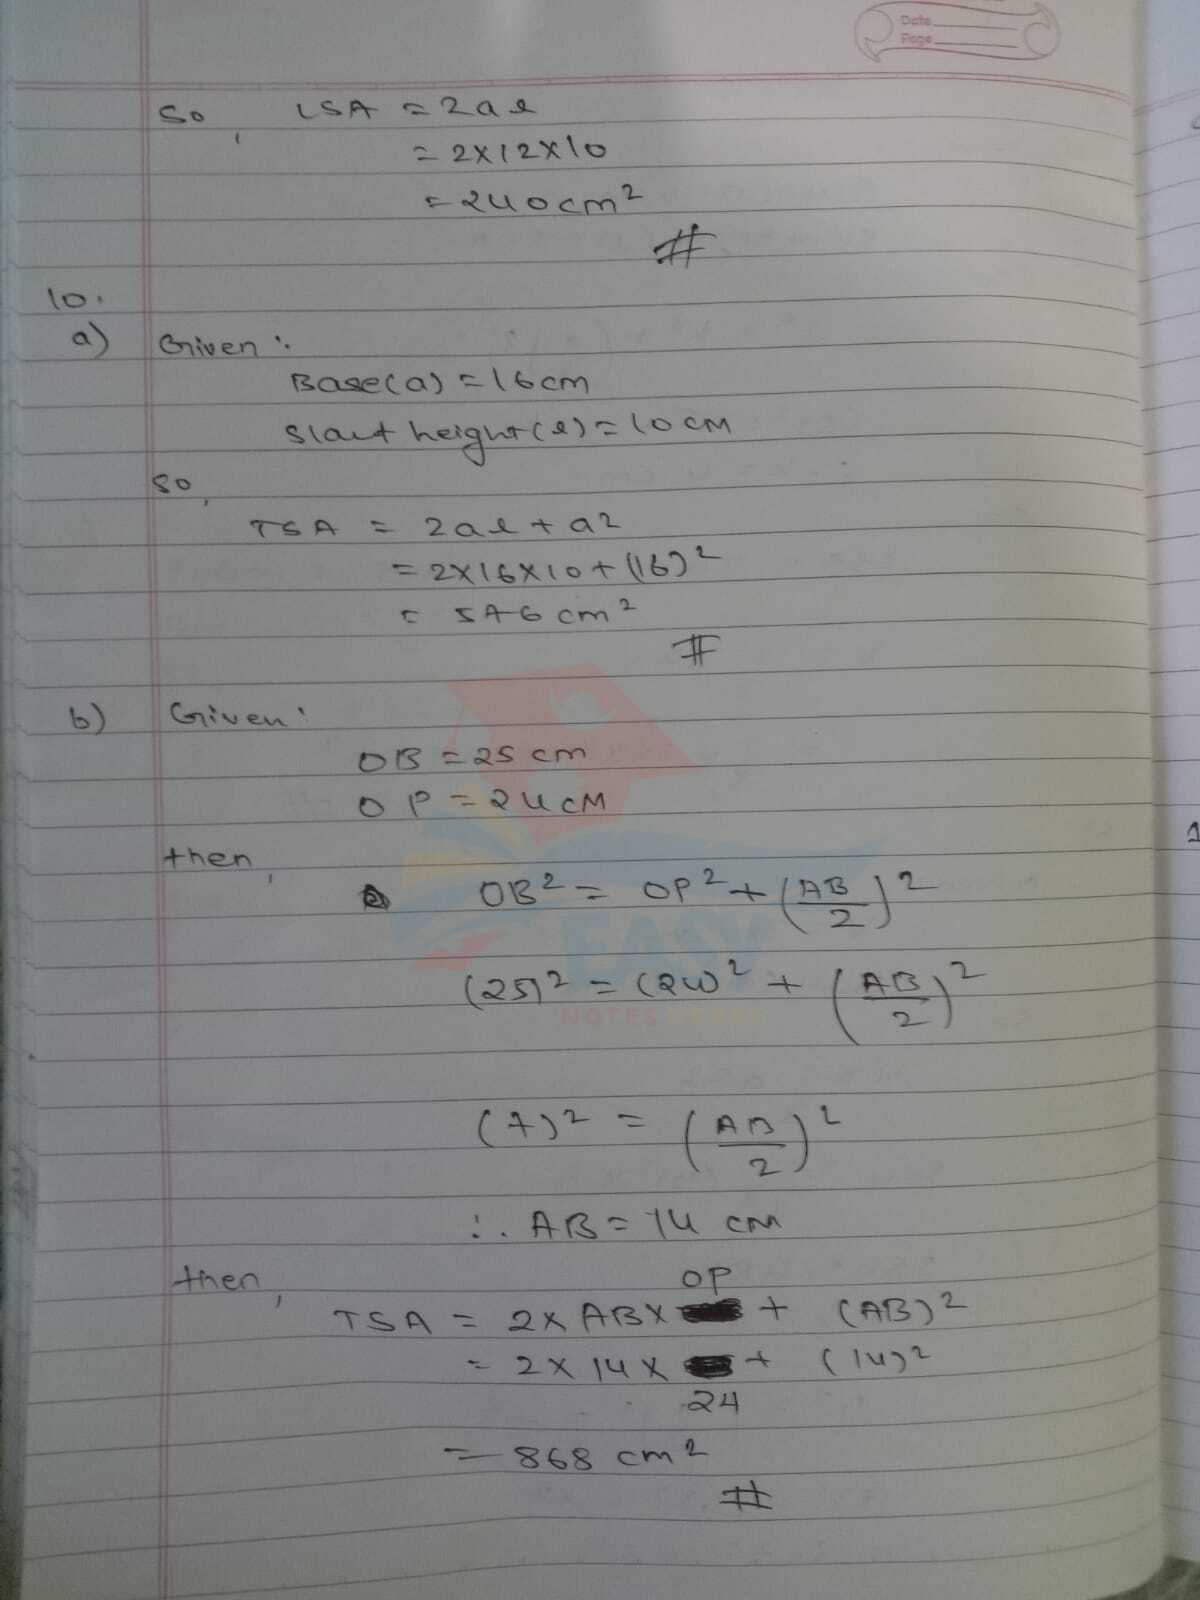 Date
Page
So, LSA = 2al
= 2×12×10
= 240cm²
#
10.
a) Given:
Base(a) = 16cm
Slant height(l) = 10cm
So,
TSA = 2al + a2
= 2×16×10 + (16)²
= 576 cm²
#
b) Given:
OB = 25 cm
OP = 24cm
then,
OB² = OP² + (AB/2)²
(25)² = (24)² + (AB/2)²
(7)² = (AB/2)²
∴ AB = 14 cm
then, OP
TSA = 2× AB× + (AB)²
= 2 × 14 × + (14)²
24
= 868 cm²
#
EASY
NOTES